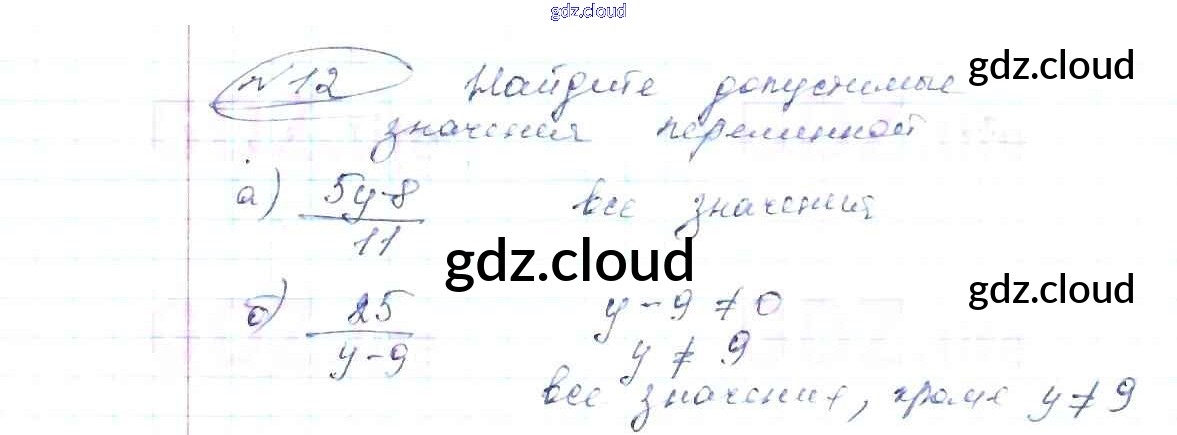 gdz.cloud
№12 Найдите допустимые gdz.cloud
значения переменной
а) 5y-8 / 11 все значения
gdz.cloud
б) 25 / y-9 y-9 ≠ 0 gdz.cloud
y ≠ 9
все значения, кроме y ≠ 9